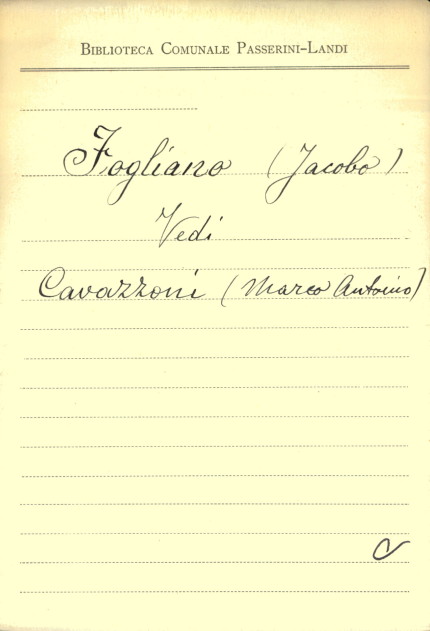 BIBLIOTECA COMUNALE PASSERINI-LANDI
Fogliano (Jacobo)
Vedi
Cavazzoni (Marco Antoino)